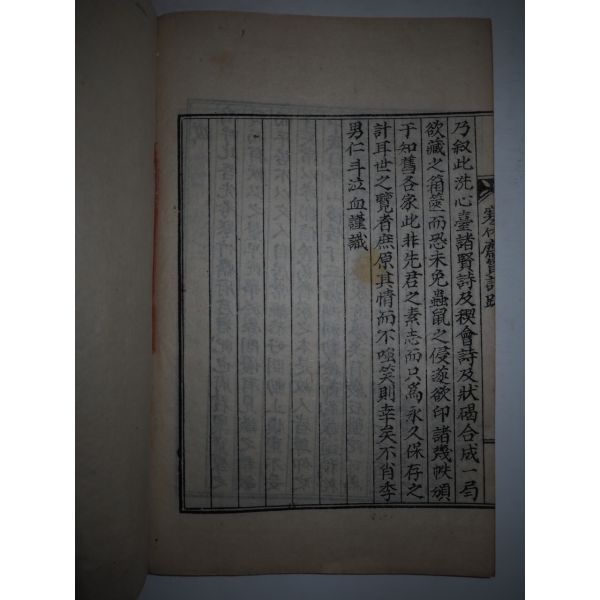 乃叙此洗心臺諸賢詩及稧會詩及狀碣合成一局
欲藏之箱篋而恐未免蟲鼠之侵遂欲印諸幾帙頒
于知舊各家此非先君之素志而只爲永久保存之
計耳世之覽者庶原其情而不嗤笑則幸矣不肖李
男仁斗泣血謹識